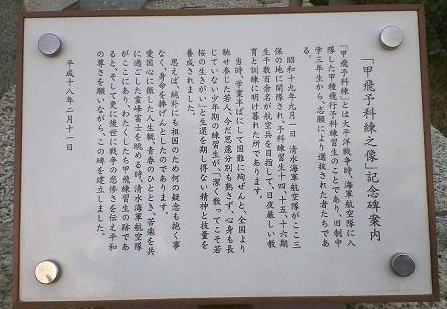 「甲飛予科練之像」記念碑案内
「甲飛予科練」とは太平洋戦争時、海軍航空隊に入
隊した甲種飛行予科練習生のことであり、旧制中
学三年生から、志願により選抜された者たちであ
る。
昭和十九年九月一日 清水海軍航空隊がここ三
保の地に開隊され、予科練習生十四、十五、十六期
生千数百余名が航空兵を目指して、日夜厳しい教
育と訓練に明け暮れた所であります。
当時、学業半ばにして国難に殉ぜんと、全国より
馳せ参じた若人、今だ思慮分別も熟さず、心身も長
じていない少年期の練習生が、「潔く散ってこそ若
桜の生きがい」と生還を期し得ない精神と技量を
養成されました。
思えば、純朴にも祖国のため何の疑念も抱く事
なく、身命を捧げんとしたのであります。
愛国心に徹した人生観、青春のひととき、苦楽を共
に過ごした霊峰富士を眺める時、清水海軍航空隊
がここにあり、わたくしたちの甲飛練習生の跡であ
ると、そして更に後世に戦争の悲惨さを伝え平和
の尊さを願いながら、この碑を建立しました。
平成十八年二月十一日